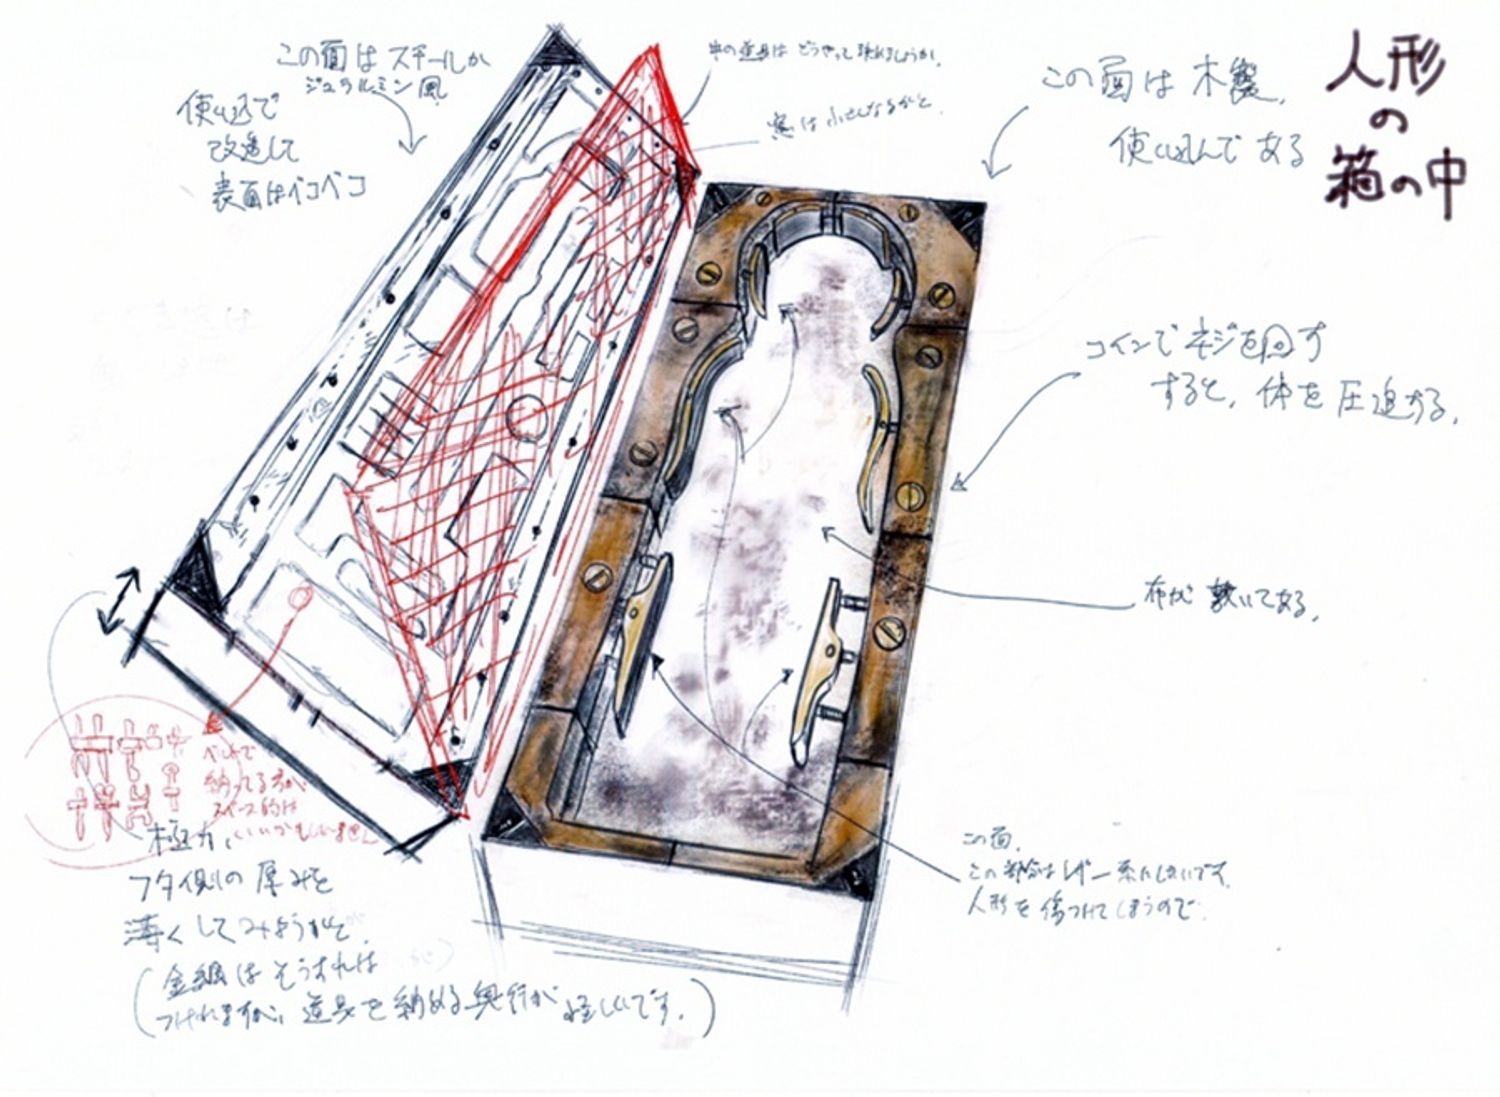 人形
の
箱の中
この面はスチールか
ジュラルミン風
使い込んで
改造して
表面はベコベコ
中の道具はどうやって
窓は小さくなるかと
この面は木製。
使い込んである
コインでネジを回す
すると、体を圧迫する。
布が敷いてある。
この面、
この部分はレザー系にしたいです。
人形を傷つけてしまうので。
ベルトで
納ってる方が、
スペース的は
いいかもしれません
極力、
フタ側の厚みを
薄くしてみようかと。
(金網はそうすれば
つけれますが、道具を納める奥行が怪しいです。)